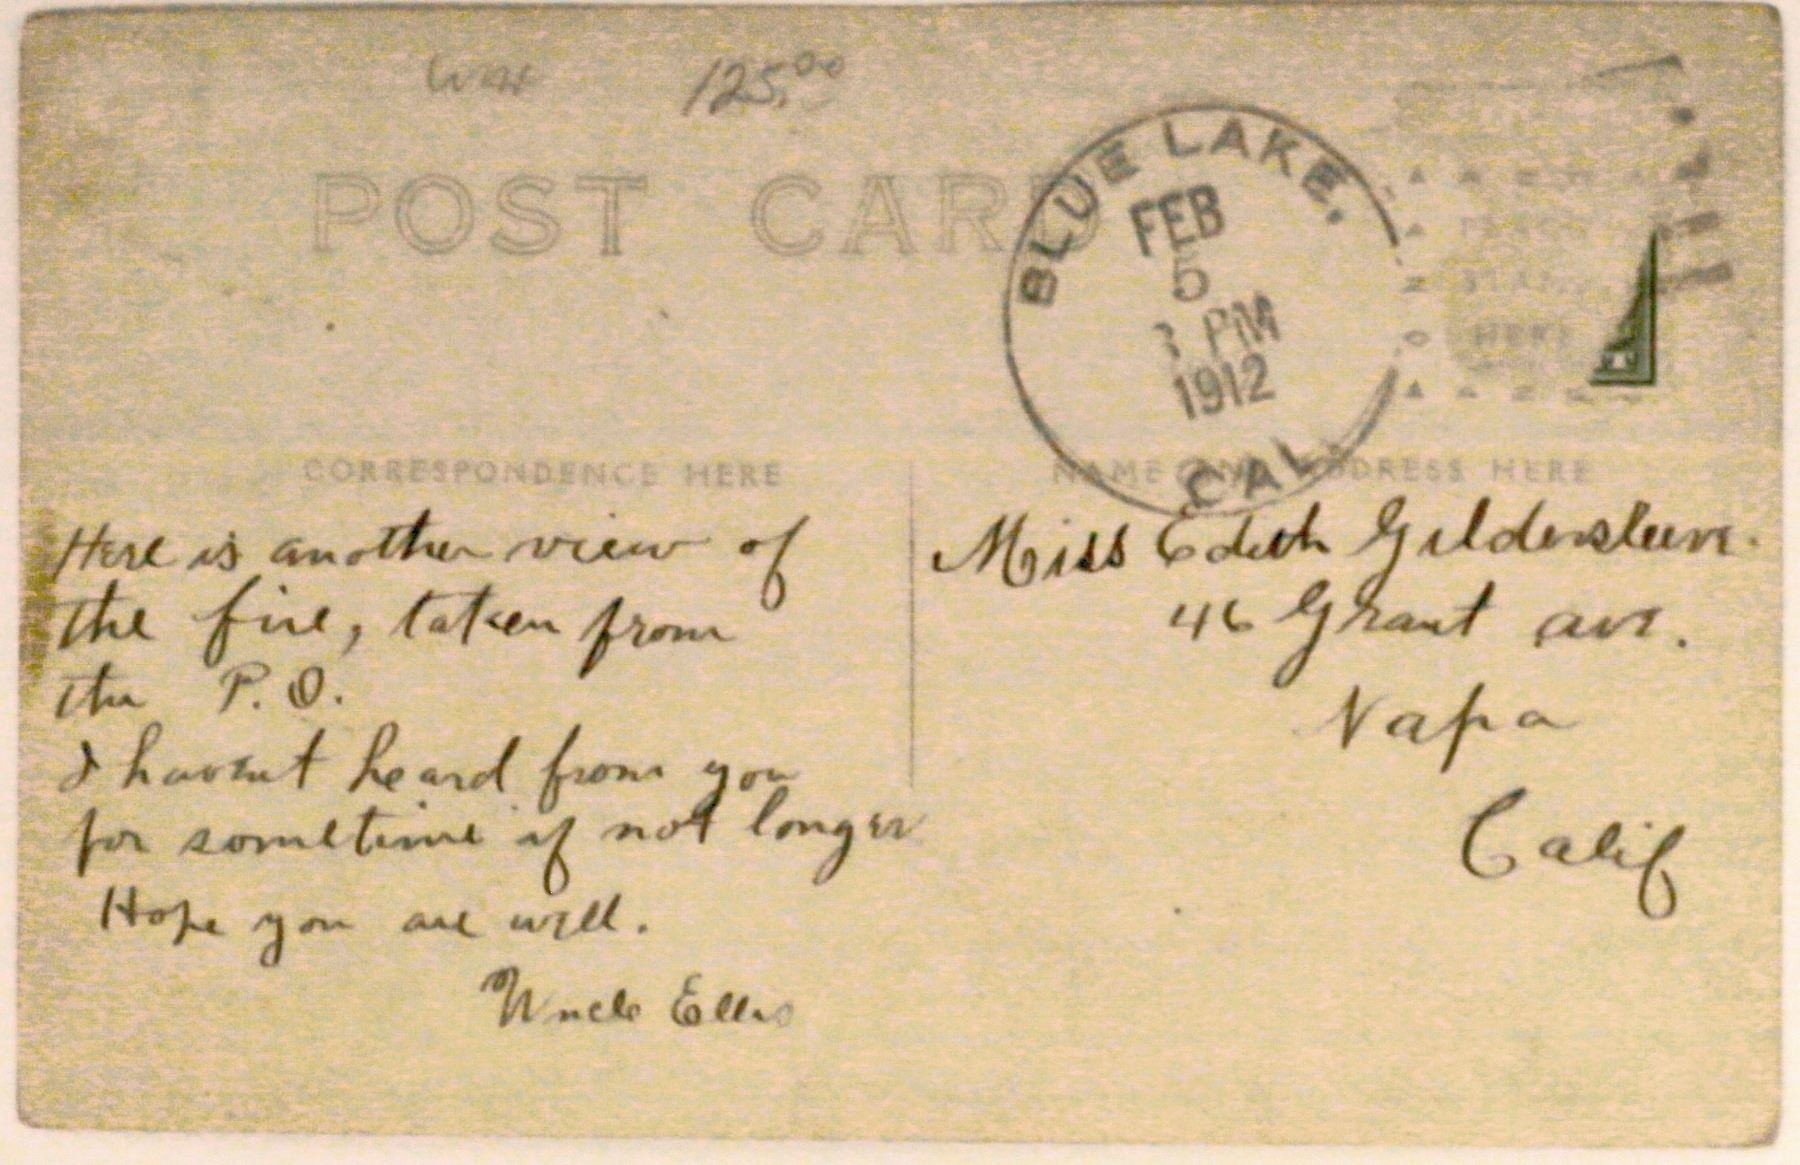 125.00
POST CARD
BLUE LAKE,
FEB
5
PM
1912
CAL.
HERE
CORRESPONDENCE HERE
NAME AND ADDRESS HERE
Here is another view of
the fire, taken from
the P.O.
I havent heard from you
for sometime if not longer
Hope you are well.
Uncle Ellis
Miss Edith Gildersleeve.
46 Grant ave.
Napa
Calif